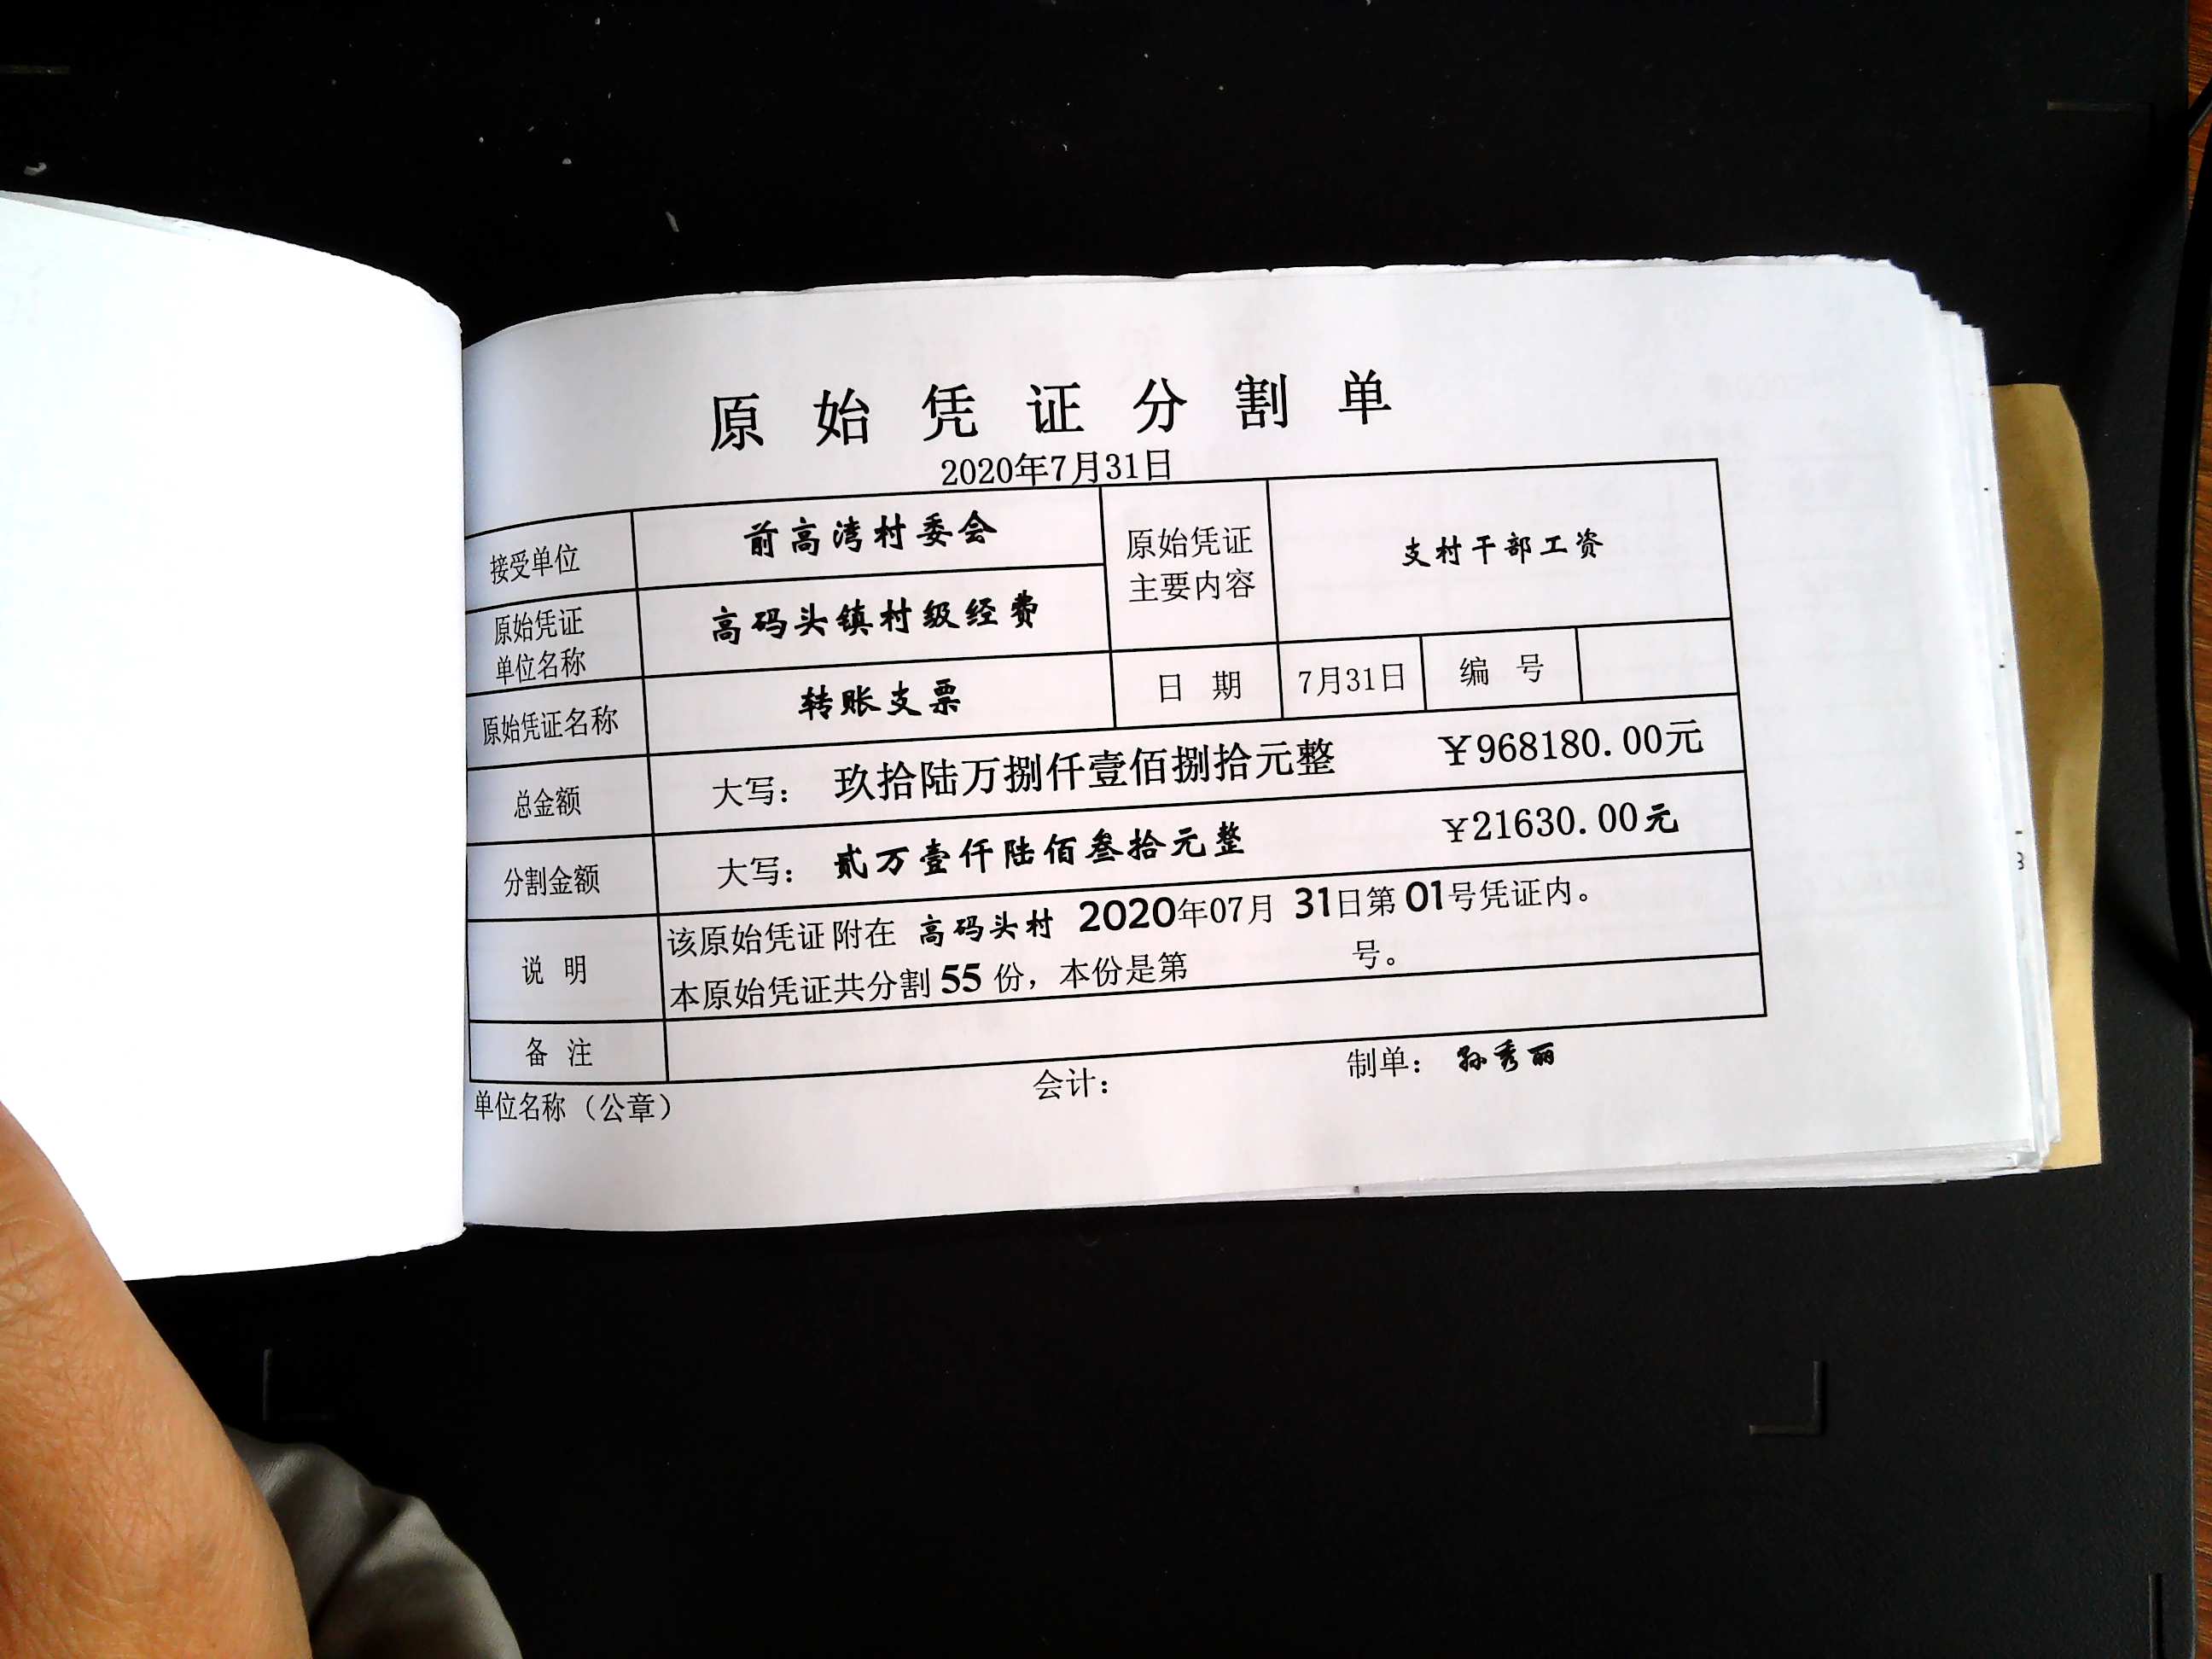 原始凭证分割单
2020年7月31日
接受单位 前高湾村委会 原始凭证主要内容 支村干部工资
原始凭证单位名称 高码头镇村级经费
原始凭证名称 转账支票 日期 7月31日 编号
总金额 大写: 玖拾陆万捌仟壹佰捌拾元整 ￥968180.00元
分割金额 大写: 贰万壹仟陆佰叁拾元整 ￥21630.00元
说明 该原始凭证附在 高码头村 2020年07月 31日第 01号凭证内。
本原始凭证共分割 55 份，本份是第 号。
备注
单位名称（公章） 会计: 制单: 孙秀丽